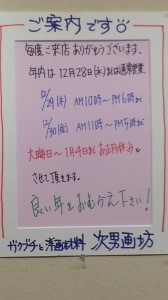 ご案内です
毎度ご来店ありがとうございます。
年内は12月28日(水)までは通常営業
12/29(木) AM10時〜PM6時
12/30(金) AM11時〜PM5時まで
大晦日〜1月4日までお正月休み
させて頂きます。
良い年をおむかえ下さい!
ガクブチと洋画材料 次男画坊